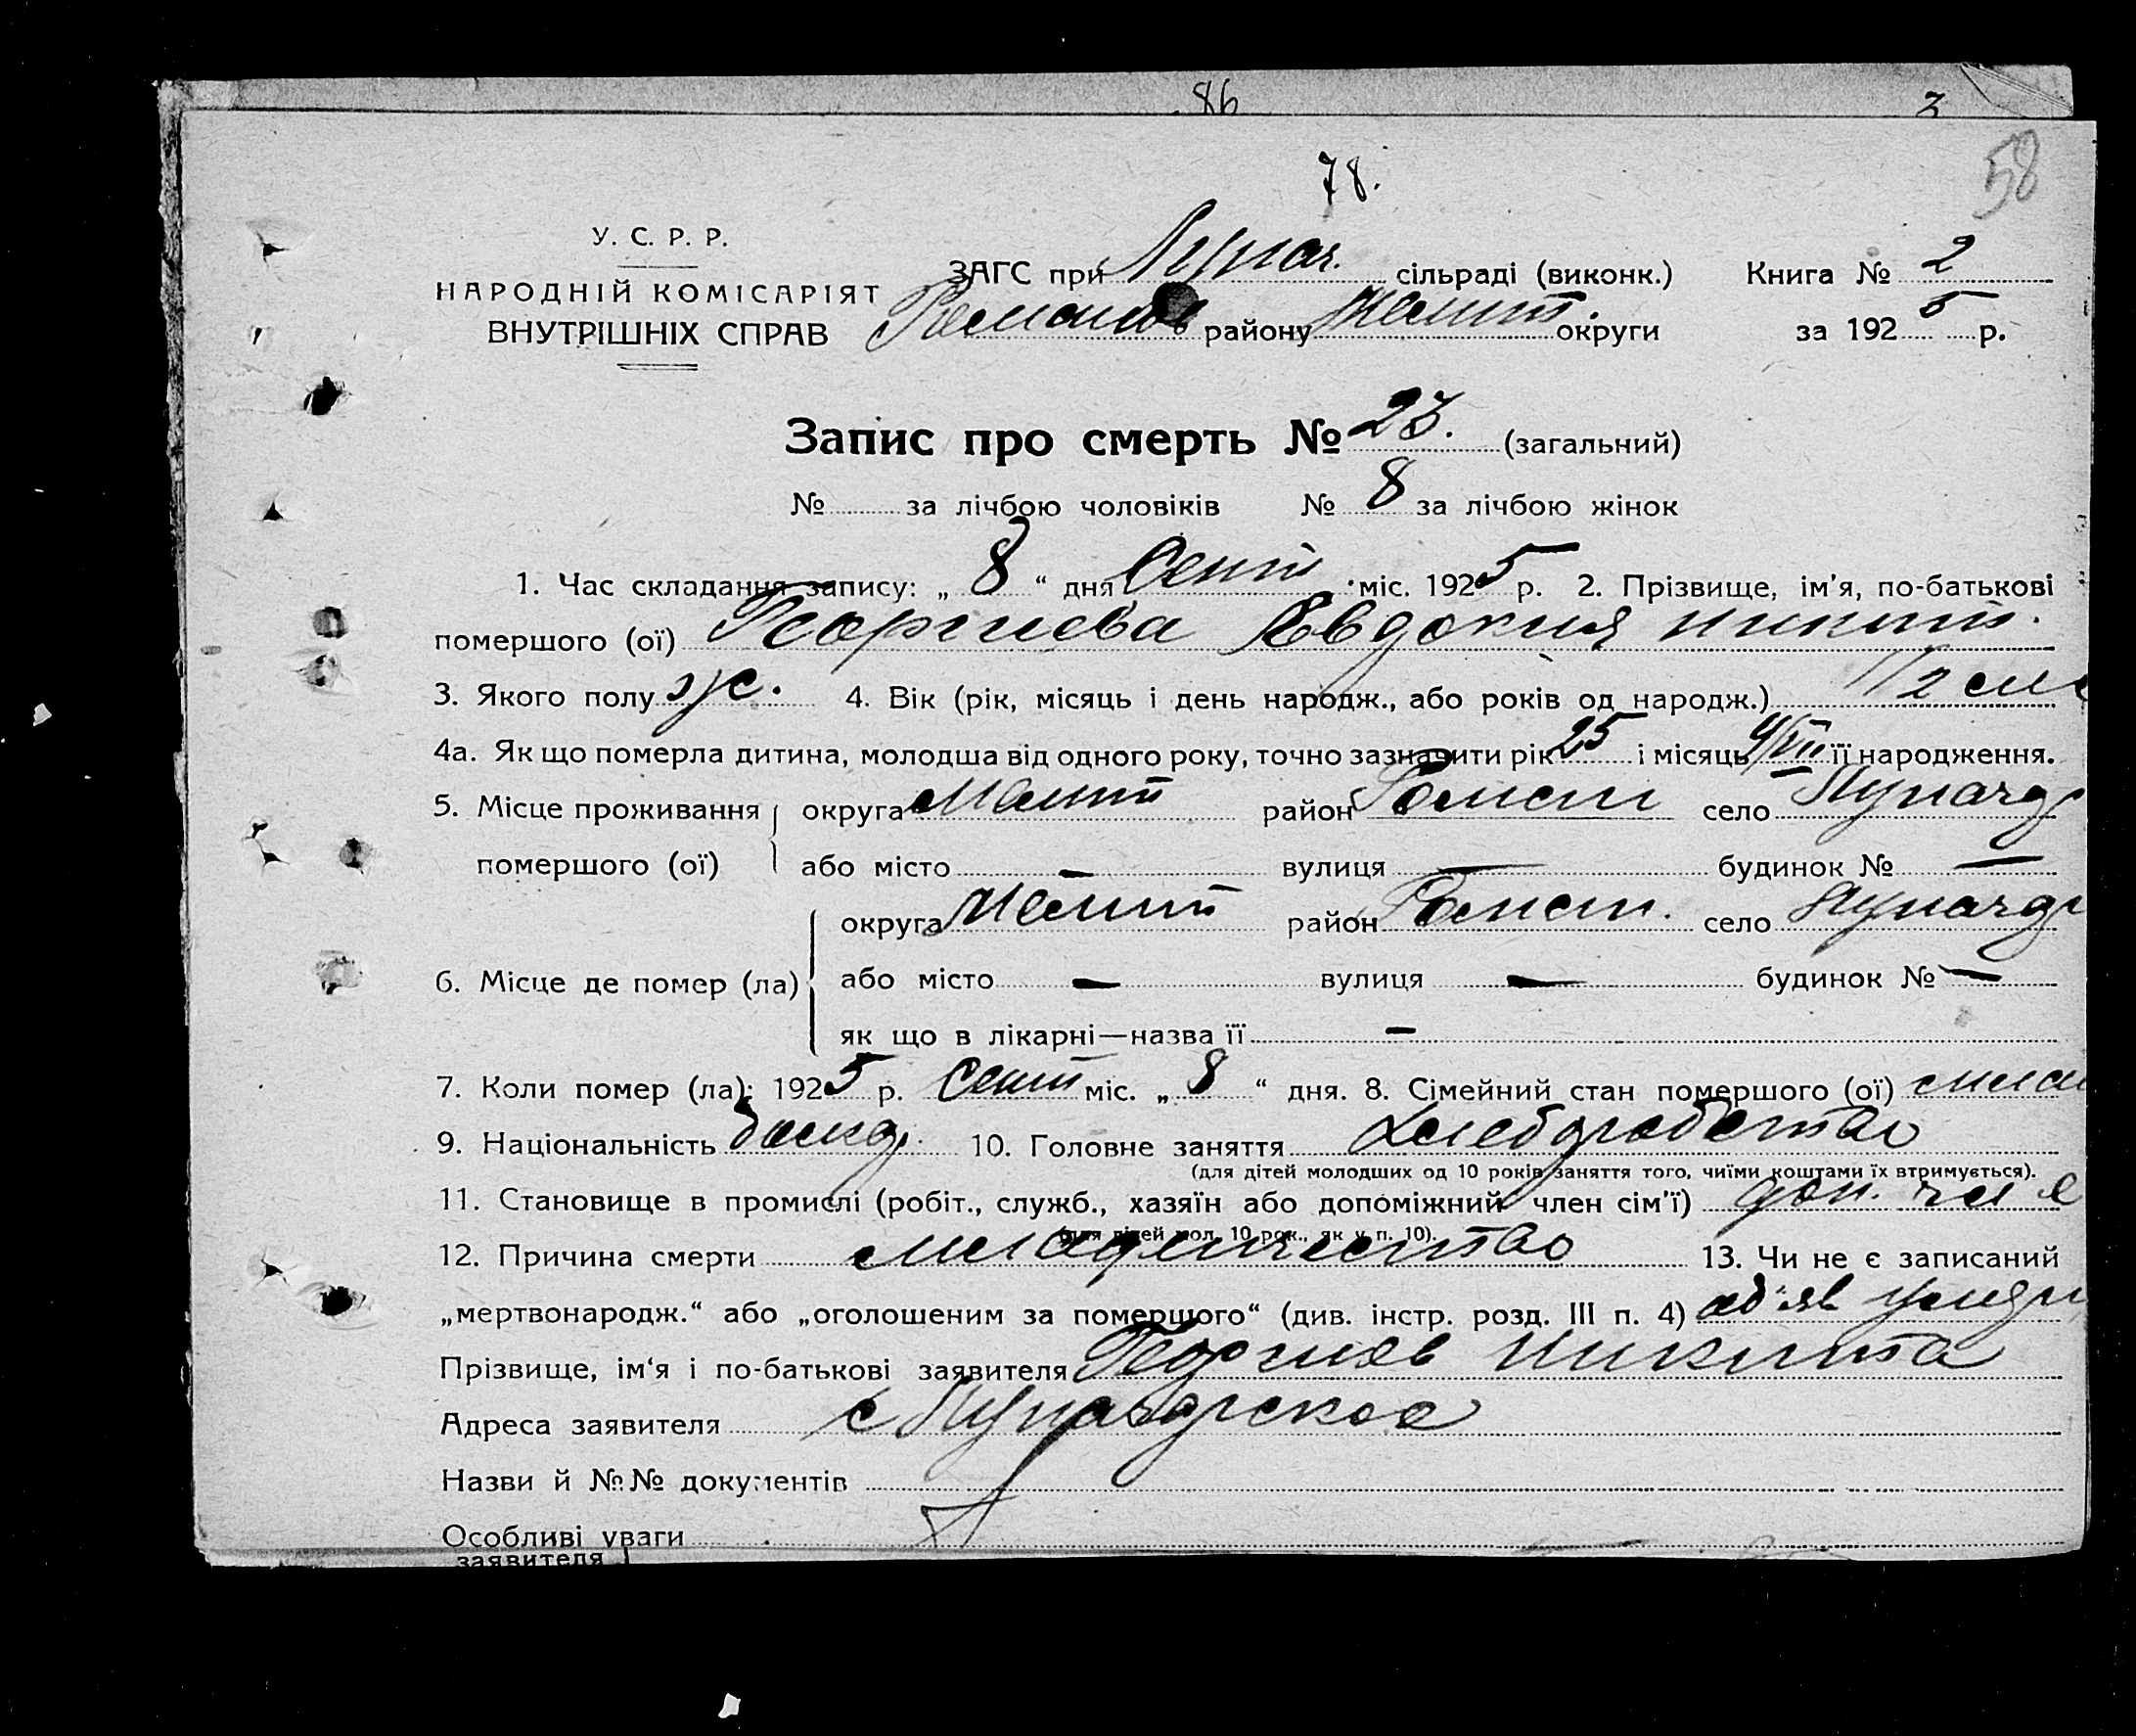 86 3
58
78.
У. С. Р. Р.
НАРОДНІЙ КОМІСАРІЯТ
ВНУТРІШНІХ СПРАВ
ЗАГС при Лунач. сільраді (виконк.) Книга № 2
Романов району Мелит. округи за 1925 р.
Запис про смерть № 23. (загальний)
№ за лічбою чоловіків № 8 за лічбою жінок
1. Час складання запису: „ 8 “ дня Сент. міс. 1925 р. 2. Прізвище, ім'я, по-батькові
помершого (ої) Георгиева Евдокия Никит.
3. Якого полу ж. 4. Вік (рік, місяць і день народж., або років од народж.) 1/2
4а. Як що померла дитина, молодша від одного року, точно зазначити рік 25 і місяць її народження.
5. Місце проживання округа Мелит район село Луначар
помершого (ої) або місто — вулиця — будинок № —
округа Мелит район село Луначар
6. Місце де помер (ла) або місто — вулиця — будинок № —
як що в лікарні—назва її —
7. Коли помер (ла): 1925 р. Сент міс. „ 8 “ дня. 8. Сімейний стан помершого (ої)
9. Національність болгар. 10. Головне заняття Хлеборобство
(для дітей молодших од 10 років заняття того, чиїми коштами їх втримується).
11. Становище в промислі (робіт., служб., хазяїн або допоміжний член сім'ї) доп. чл
(для дітей мол. 10 рок., як у п. 10).
12. Причина смерти младенчество 13. Чи не є записаний
„мертвонародж.“ або „оголошеним за помершого“ (див. інстр. розд. III п. 4) об'яв
Прізвище, ім‘я і по-батькові заявителя Георгиев Никита
Адреса заявителя с Луначарское
Назви й №№ документів
Особливі уваги
заявителя